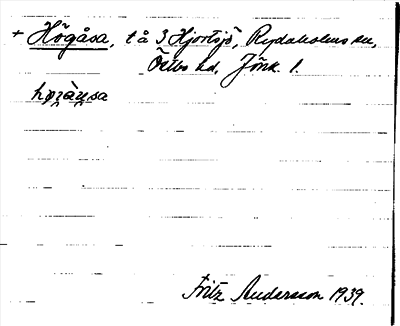 + Högåsa, t å 3 Hjortsjö, Rydaholms sn,
Östbo hd, Jönk. l.
Fritz Andersson 1939.